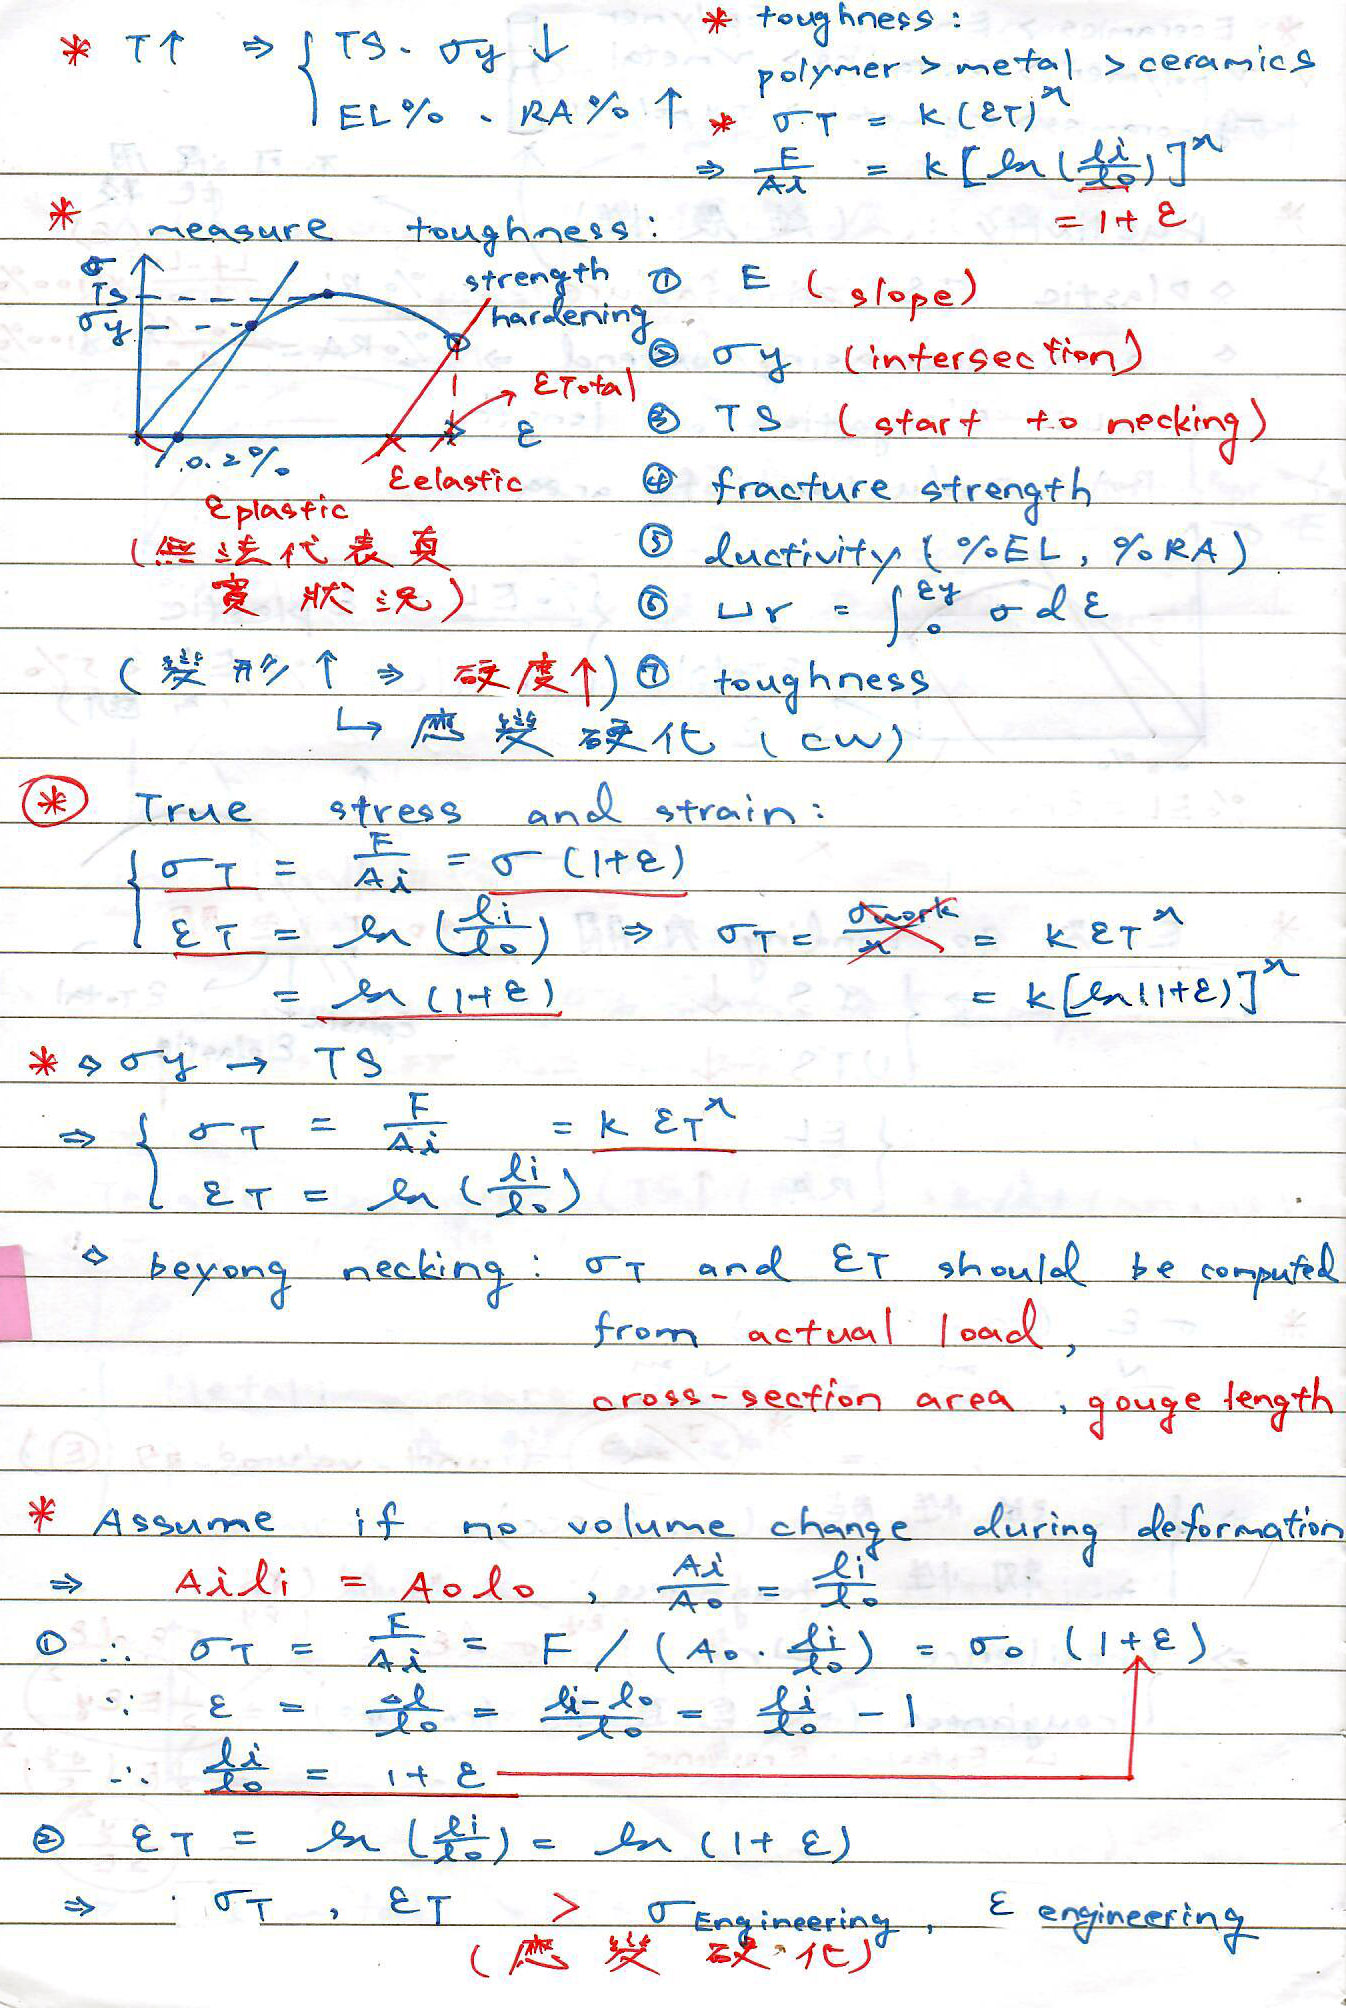 * T↑ ⇒ { TS、σy ↓
EL%、RA% ↑
* toughness:
polymer > metal > ceramics
* σT = K(εT)^n
⇒ F/Ai = K[ln(li/lo)]^n
= 1+ε
* measure toughness:
σ
TS
σy
0.2%
ε
strength
hardening
εTotal
εelastic
εplastic
(無法代表真
實狀況)
① E (slope)
② σy (intersection)
③ TS (start to necking)
④ fracture strength
⑤ ductivity (%EL, %RA)
⑥ ur = ∫₀^εy σdε
⑦ toughness
(變形↑ ⇒ 硬度↑)
↳ 應變硬化 (CW)
* True stress and strain:
{ σT = F/Ai = σ(1+ε)
εT = ln(li/lo) ⇒ σT = σwork/n = KεT^n
= ln(1+ε) = K[ln(1+ε)]^n
* ◇ σy → TS
⇒ { σT = F/Ai = K εT^n
εT = ln(li/lo)
◇ beyong necking: σT and εT should be computed
from actual load,
cross-section area, gouge length
* Assume if no volume change during deformation
⇒ Aili = Aolo, Ai/Ao = li/lo
① ∴ σT = F/Ai = F/(Ao·li/lo) = σo (1+ε)
∵ ε = Δl/lo = li-lo/lo = li/lo - 1
∴ li/lo = 1+ε
② εT = ln(li/lo) = ln(1+ε)
⇒ σT, εT > σEngineering, ε engineering
(應變硬化)